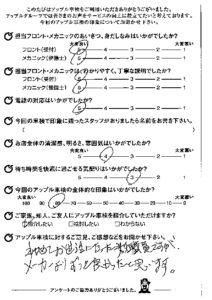 このたびはアップル車検をご利用いただきありがとうございました。
アップルグループではお客さまの声をサービスの向上に役立てたいと考えております。
担当フロント・メカニックのあいさつ、身だしなみはいかがでしたか？
大変良い 大変悪い
フロント（受付） 5 4 3 2 1
メカニック（整備士） 5 4 3 2 1
担当フロント・メカニックはわかりやすく、丁寧な説明でしたか？
大変良い 大変悪い
フロント（受付） 5 4 3 2 1
メカニック（整備士） 5 4 3 2 1
電話の対応はいかがでしたか？
大変良い 大変悪い
5 4 3 2 1
今回の車検で印象に残ったスタッフがありましたら名前をお書き下さい。
お店全体の清潔感、明るさ、雰囲気はいかがでしたか？
大変良い 大変悪い
5 4 3 2 1
待ち時間を快適に過ごせる気配りはいかがでしたか？
大変良い 大変悪い
5 4 3 2 1
今回のアップル車検の全体的な印象はいかがでしたか？
大変良い 大変悪い
100 90 80 70 60 50 40 30 20 10 0
ご家族、知人、ご友人にアップル車検を紹介していただけますか？
紹介したい 紹介したくない
アップル車検に対するご意見、ご感想などをお聞かせ下さい。
初めてお世話になった
メーカーよりずっと良かったと思います。
アンケートのご協力ありがとうございました。